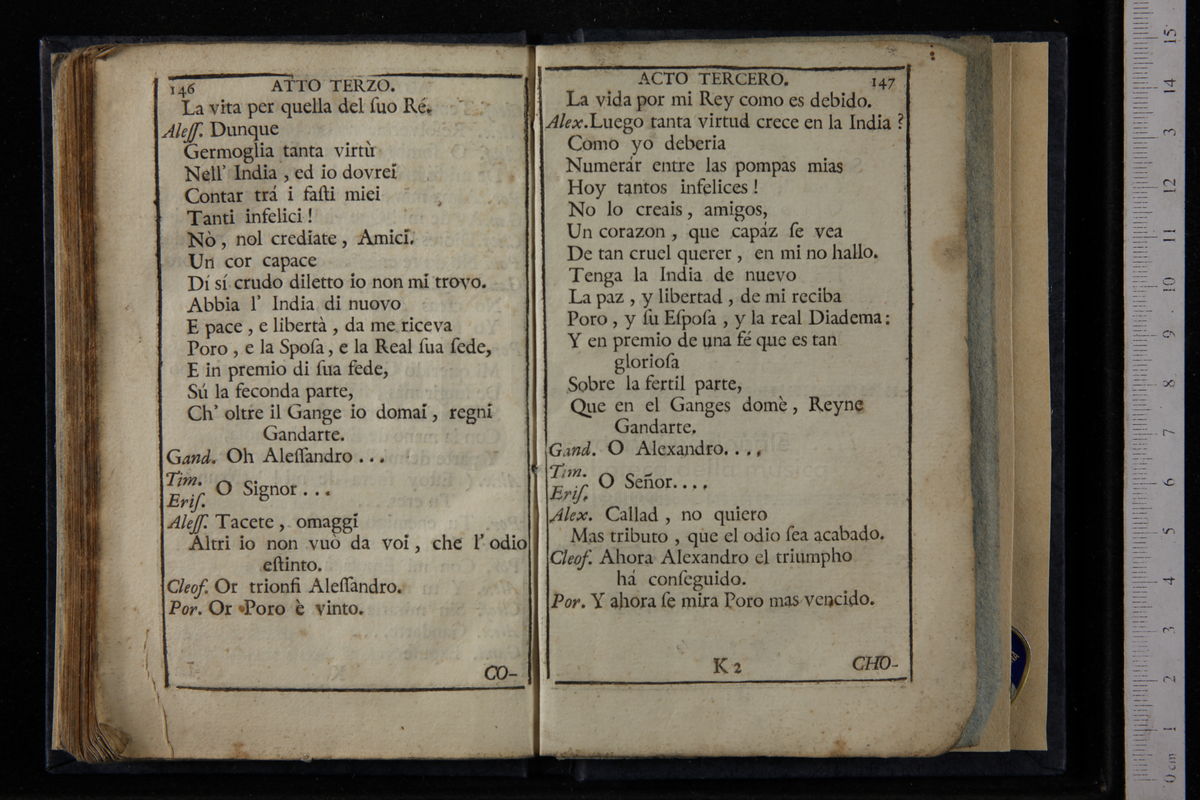 146 ATTO TERZO.
La vita per quella del ſuo Ré.
Aleſſ. Dunque
Germoglia tanta virtù
Nell' India , ed io dovrei
Contar trá i faſti miei
Tanti infelici !
Nò , nol crediate , Amici.
Un cor capace
Dí sí crudo diletto io non mi trovo.
Abbia l' India di nuovo
E pace , e libertà , da me riceva
Poro , e la Spoſa , e la Real ſua ſede,
E in premio di ſua fede,
Sú la feconda parte,
Ch' oltre il Gange io domai , regni
Gandarte.
Gand. Oh Aleſſandro . . .
Tim.
Eriſ. O Signor . . .
Aleſſ. Tacete , omaggi
Altri io non vuò da voi , che l' odio
eſtinto.
Cleof. Or trionfi Aleſſandro.
Por. Or Poro è vinto.
CO-
ACTO TERCERO. 147
La vida por mi Rey como es debido.
Alex. Luego tanta virtud crece en la India ?
Como yo deberia
Numerár entre las pompas mias
Hoy tantos infelices !
No lo creais , amigos,
Un corazon , que capáz ſe vea
De tan cruel querer , en mi no hallo.
Tenga la India de nuevo
La paz , y libertad , de mi reciba
Poro , y ſu Eſpoſa , y la real Diadema :
Y en premio de una fé que es tan
glorioſa
Sobre la fertil parte,
Que en el Ganges domè , Reyne
Gandarte.
Gand. O Alexandro. . . .
Tim.
Eriſ. O Señor. . . .
Alex. Callad , no quiero
Mas tributo , que el odio ſea acabado.
Cleof. Ahora Alexandro el triumpho
há conſeguido.
Por. Y ahora ſe mira Poro mas vencido.
K 2 CHO-
0 cm 1 2 3 4 5 6 7 8 9 10 11 12 13 14 15